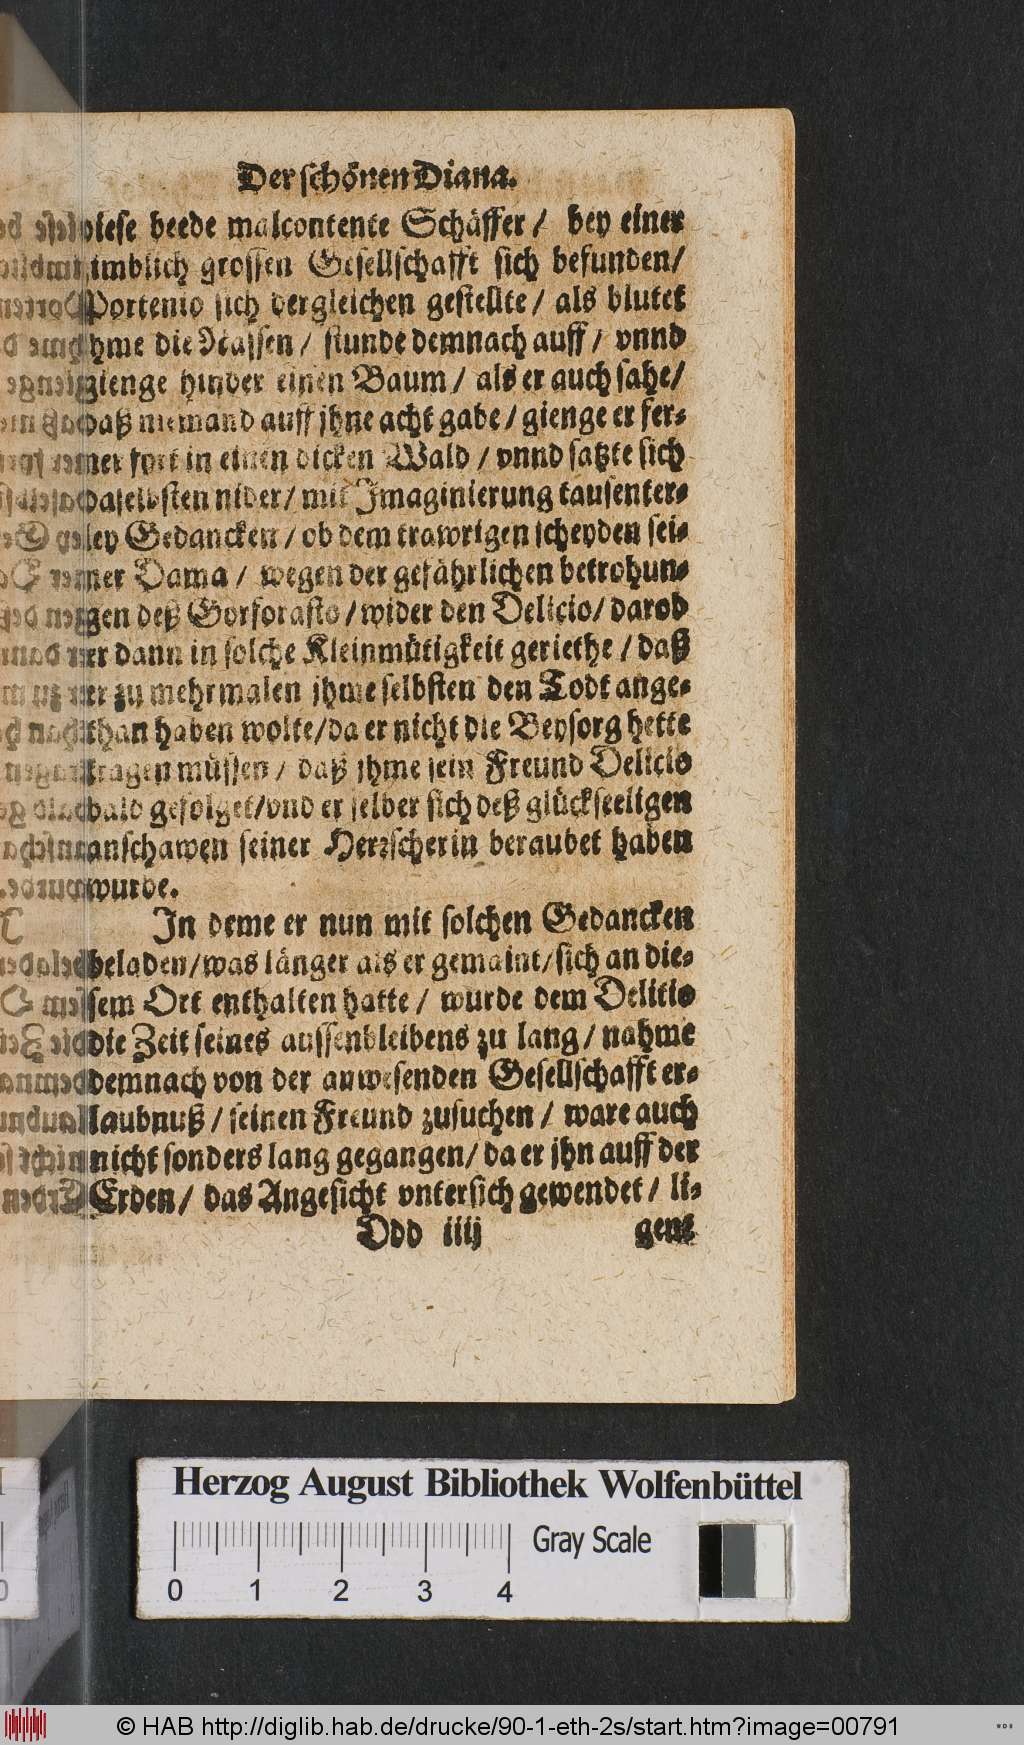 Der schönen Diana.
diese beede malcontente Schäffer / bey einer
zimblich grossen Gesellschafft sich befunden/
Portenio sich dergleichen gestellte / als blutet
jhme die Nassen / stunde demnach auff / vnnd
gienge hinder einen Baum / als er auch sahe/
daß niemand auff jhne acht gabe / gienge er fer-
ner fort in einen dicken Wald / vnnd satzte sich
daselbsten nider / mit Imaginierung tausenter-
ley Gedancken / ob dem trawrigen scheyden sei-
ner Dama / wegen der gefährlichen betrohun-
gen deß Gorforasto / wider den Delicio/ darob
er dann in solche Kleinmütigkeit geriethe / daß
er zu mehrmalen jhme selbsten den Todt ange-
than haben wolte/da er nicht die Beysorg hette
tragen müssen / daß jhme sein Freund Delicio
bald gefolget/vnd er selber sich deß glückseeligen
anschawen seiner Herrscherin beraubet haben
wurde.
In deme er nun mit solchen Gedancken
beladen/was länger als er gemaint/sich an die-
sem Ort enthalten hatte / wurde dem Delitio
die Zeit seines aussenbleibens zu lang / nahme
demnach von der anwesenden Gesellschafft er-
laubnuß / seinen Freund zusuchen / ware auch
nicht sonders lang gegangen/ da er jhn auff der
Erden / das Angesicht vntersich gewendet / li-
Ddd iiij gent
Herzog August Bibliothek Wolfenbüttel
Gray Scale
0 1 2 3 4
© HAB http://diglib.hab.de/drucke/90-1-eth-2s/start.htm?image=00791